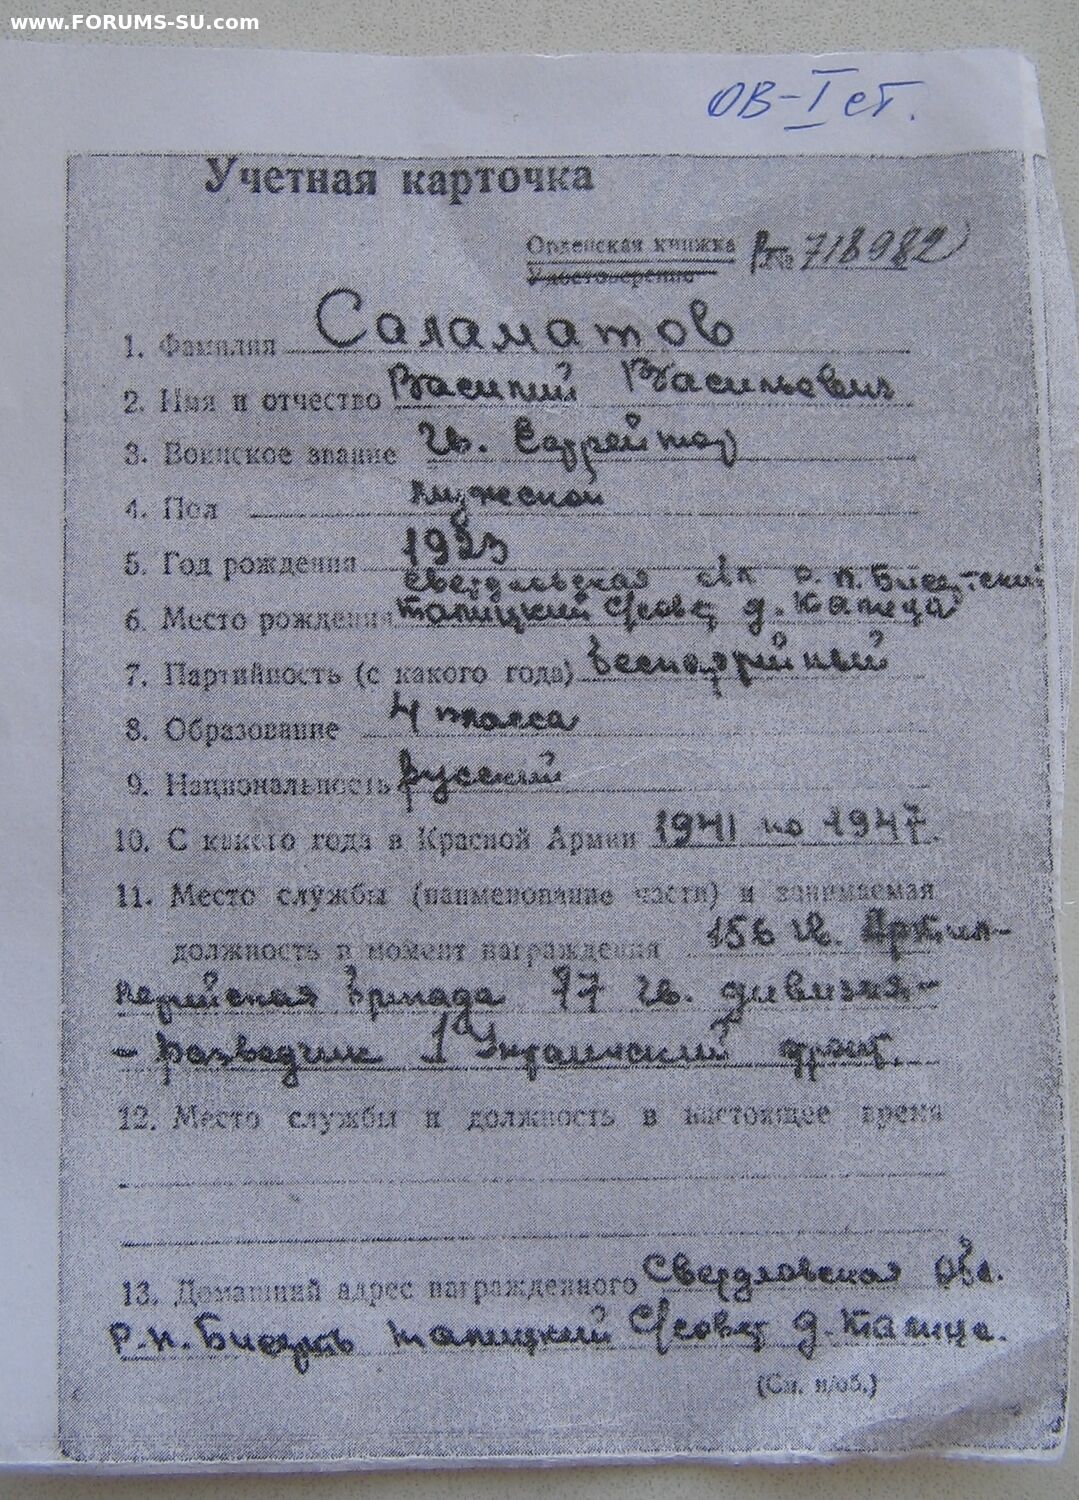 www.FORUMS-SU.com
ОВ-I ст.
Учетная карточка
Орденская книжка № 718982
Удостоверение
1. Фамилия Саламатов
2. Имя и отчество Василий Васильевич
3. Воинское звание Гв. Ефрейтор
4. Пол мужской
5. Год рождения 1923
6. Место рождения Свердловская обл р.п. Бисертский
Талицкий С/совет д. Талица
7. Партийность (с какого года) беспартийный
8. Образование 4 класса
9. Национальность русский
10. С какого года в Красной Армии 1941 по 1947.
11. Место службы (наименование части) и занимаемая
должность в момент награждения 156 гв. Артил-
лерийская бригада 77 гв. дивизия-
- разведчик 1 Украинский фронт.
12. Место службы и должность в настоящее время
13. Домашний адрес награжденного Свердловская обл.
Р.п. Бисерть Талицкий С/совет д. Талица.
(См. н/об.)